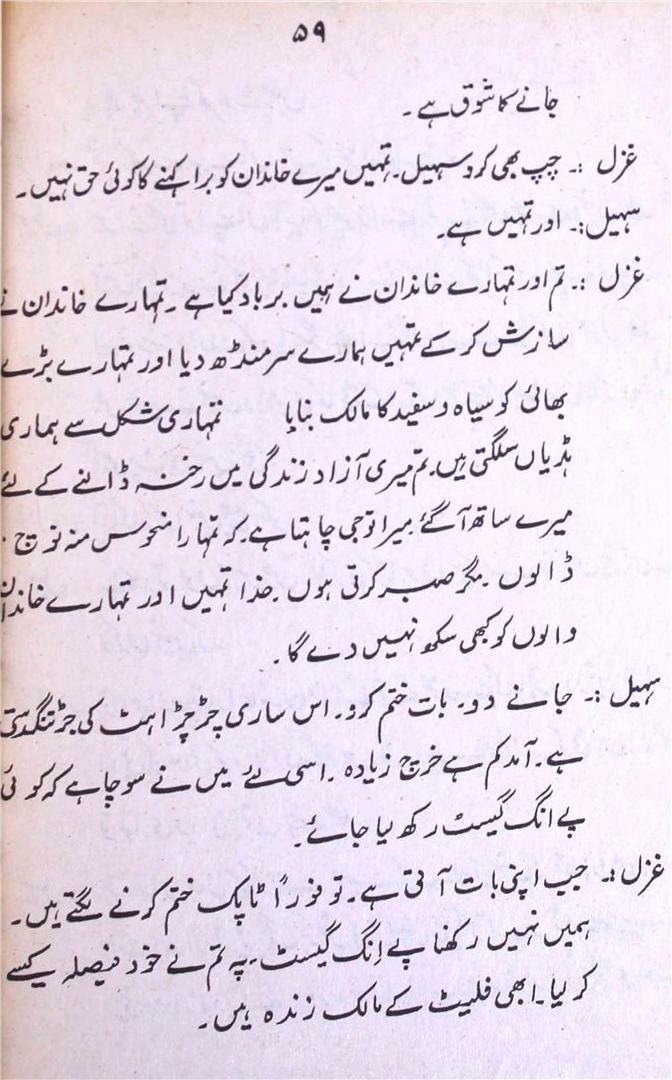 ۵۹
جانے کا شوق ہے ۔
غزل :۔ چپ بھی کرو سہیل۔ تمہیں میرے خاندان کو برا کہنے کا کوئی حق نہیں۔
سہیل :۔ اور تمہیں ہے۔
غزل :۔ تم اور تمہارے خاندان نے ہمیں برباد کیا ہے ۔ تمہارے خاندان نے
سازش کر کے تمہیں ہمارے سر منڈھ دیا اور تمہارے بڑے
بھائی کو سیاہ و سفید کا مالک بنایا تمہاری شکل سے ہماری
ہڈیاں سلگتی ہیں۔ تم میری آزاد زندگی میں رخنہ ڈالنے کے لئے
میرے ساتھ آگئے۔ میرا تو جی چاہتا ہے کہ تمہارا منحوس منہ نوچ
ڈالوں ۔ مگر صبر کرتی ہوں ۔ خدا تمہیں اور تمہارے خاندان
والوں کو کبھی سکھ نہیں دے گا ۔
سہیل :۔ جانے دو۔ بات ختم کرو۔ اس ساری چڑچڑاہٹ کی جڑ تنگدستی
ہے۔ آمد کم ہے خرچ زیادہ ۔ اسی لئے میں نے سوچا ہے کہ کوئی
پے انگ گیسٹ رکھ لیا جائے۔
غزل :۔ جب اپنی بات آتی ہے۔ تو فوراً ٹاپک ختم کرنے لگتے ہیں۔
ہمیں نہیں رکھنا پے اِنگ گیسٹ۔ یہ تم نے خود فیصلہ کیسے
کر لیا۔ ابھی فلیٹ کے مالک زندہ ہیں۔